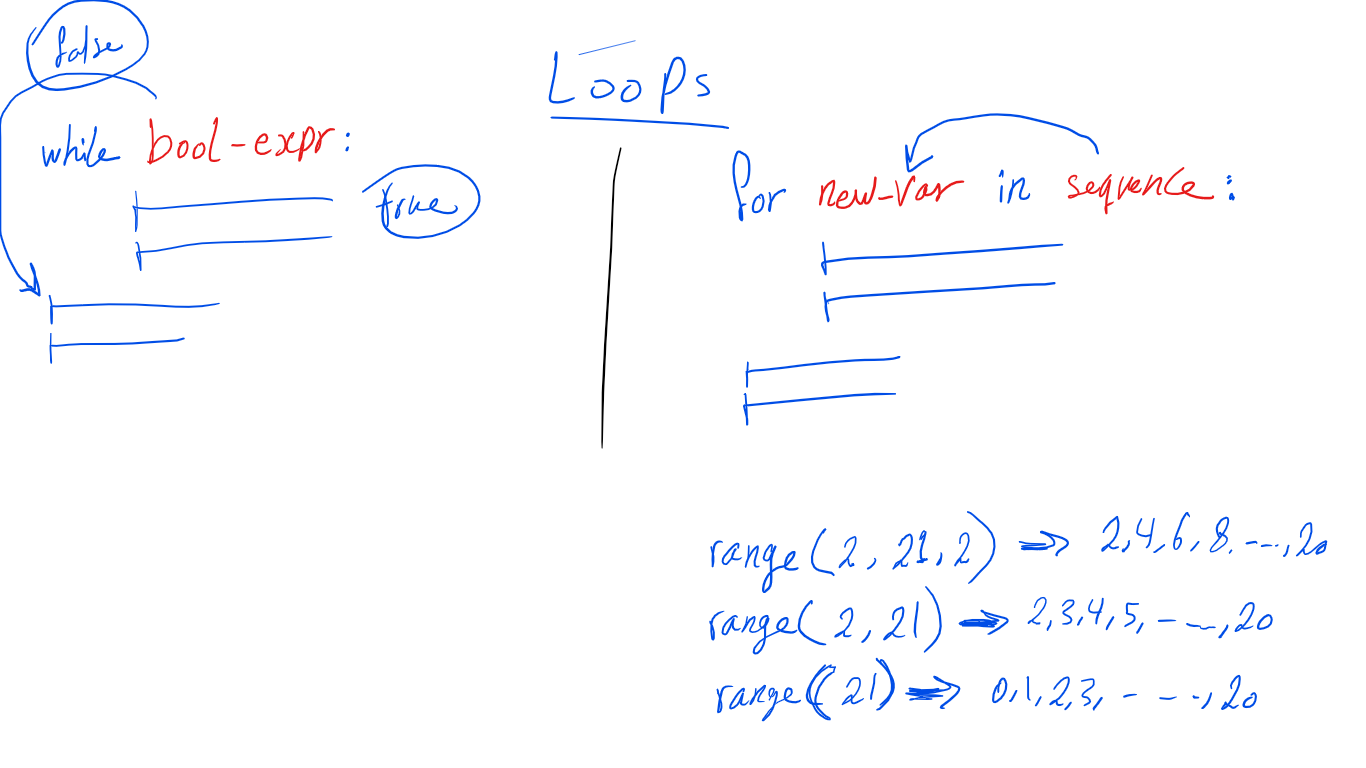 Loops
false
while bool-expr:
true
for new-var in sequence:
range(2, 21, 2) => 2, 4, 6, 8, ---, 20
range(2, 21) => 2, 3, 4, 5, - --, 20
range(21) => 0, 1, 2, 3, - - - -, 20